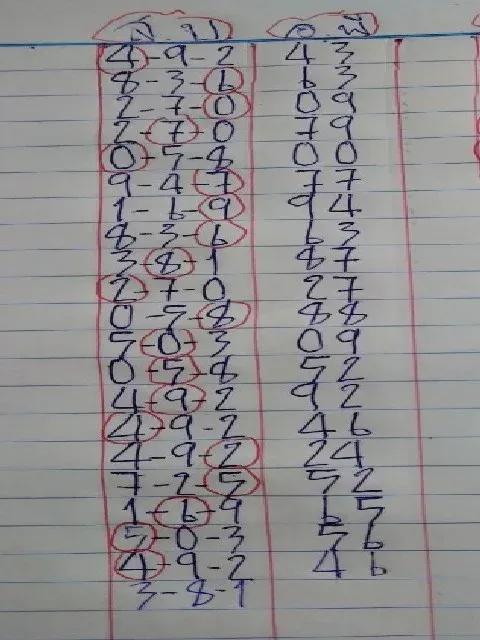 4-9-2 43
8-3-6 63
2-7-0 09
2-7-0 79
0-5-8 00
9-4-7 77
1-6-9 94
8-3-6 63
3-8-1 87
2-7-0 27
0-5-8 88
5-0-3 09
0-5-8 52
4-9-2 92
4-9-2 46
4-9-2 24
7-2-5 52
1-6-9 65
5-0-3 56
4-9-2 46
3-8-1